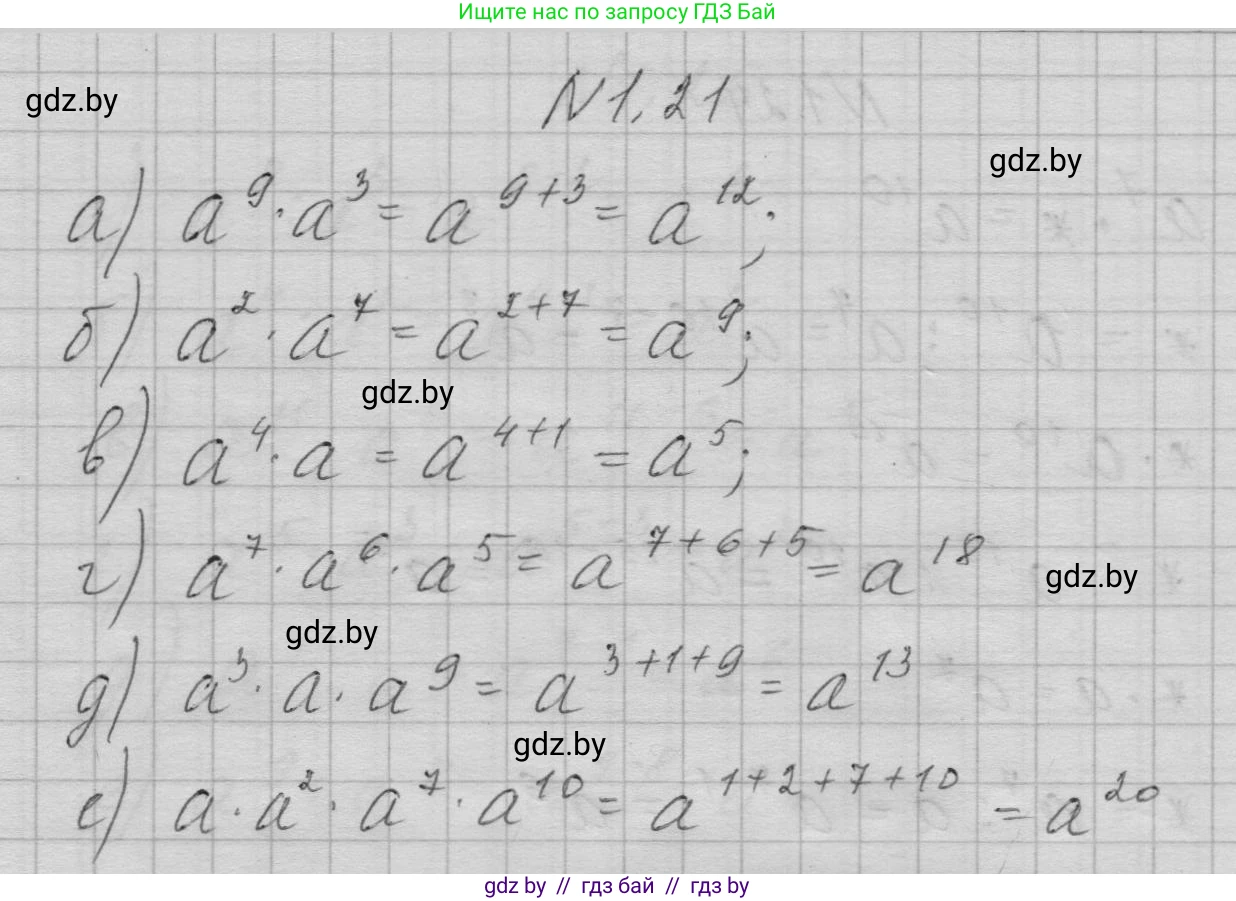 Ищите нас по запросу ГДЗ Бай
N 1.21
gdz.by
gdz.by
а) a⁹ · a³ = a⁹⁺³ = a¹²;
б) a² · a⁷ = a²⁺⁷ = a⁹;
gdz.by
в) a⁴ · a = a⁴⁺¹ = a⁵;
г) a⁷ · a⁶ · a⁵ = a⁷⁺⁶⁺⁵ = a¹⁸
gdz.by
gdz.by
д) a³ · a · a⁹ = a³⁺¹⁺⁹ = a¹³
gdz.by
е) a · a² · a⁷ · a¹⁰ = a¹⁺²⁺⁷⁺¹⁰ = a²⁰
gdz by // гдз бай // гдз by